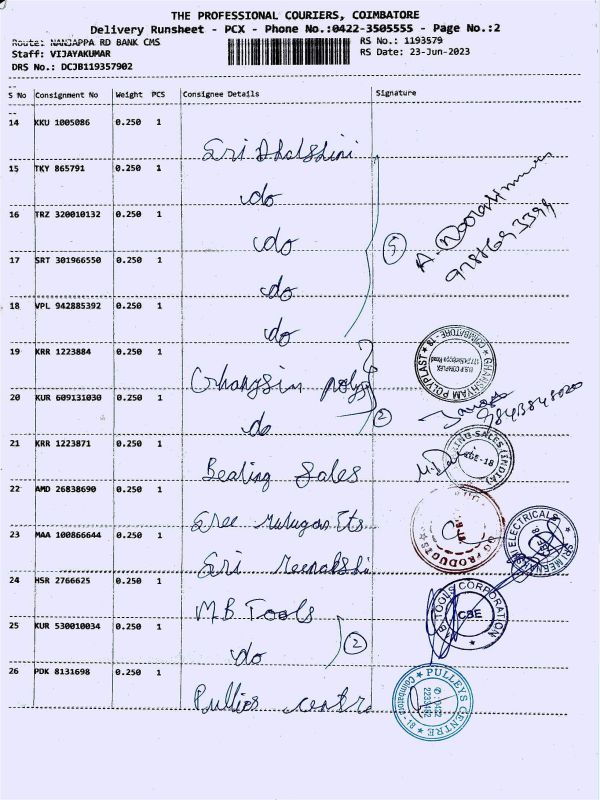 THE PROFESSIONAL COURIERS, COIMBATORE
Delivery Runsheet - PCX - Phone No.:0422-3505555 - Page No.:2
Route: NANJAPPA RD BANK CMS
RS No.: 1193579
Staff: VIJAYAKUMAR
RS Date: 23-Jun-2023
DRS No.: DCJB119357902
S No Consignment No Weight PCS Consignee Details Signature
14 KKU 1005086 0.250 1
Sri
15 TKY 865791 0.250 1
do
16 TRZ 320010132 0.250 1
do
17 SRT 301966550 0.250 1
do
18 VPL 942885392 0.250 1
do
5
A.
19 KRR 1223884 0.250 1
GHANSHYAM POLYPLAST
COIMBATORE - 18
20 KUR 609131030 0.250 1
do
2
9843848020
21 KRR 1223871 0.250 1
Bearing Sales
SALES (INDIA)
CBE-18
22 AMD 26838690 0.250 1
Sree Murugan Ets
PRODUCTS
23 MAA 100866644 0.250 1
Sri Meenakshi
SRI MEENAKSHI ELECTRICALS
24 HSR 2766625 0.250 1
M.B Tools
TOOLS CORPORATION
CBE
25 KUR 530010034 0.250 1
do
2
26 PDK 8131698 0.250 1
Pullies centre
PULLEYS CENTRE
Coimbatore - 18